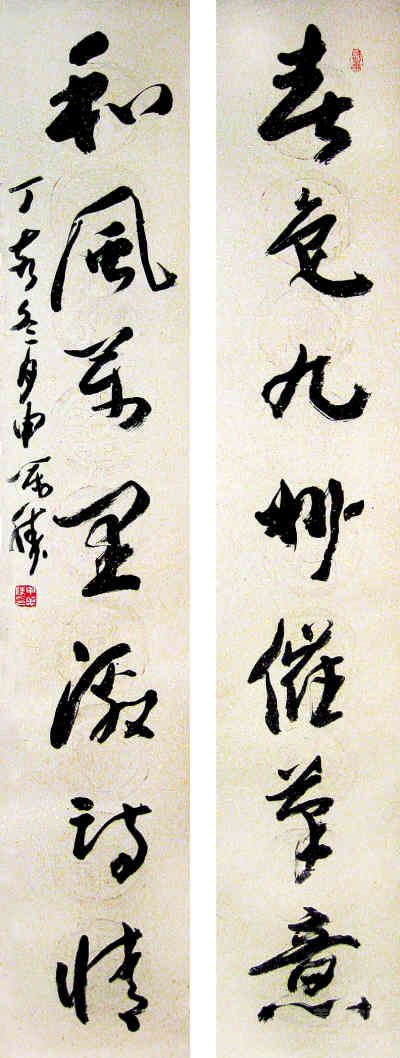 春色九州催筆意
和風萬里激詩情
丁亥冬月申萬勝